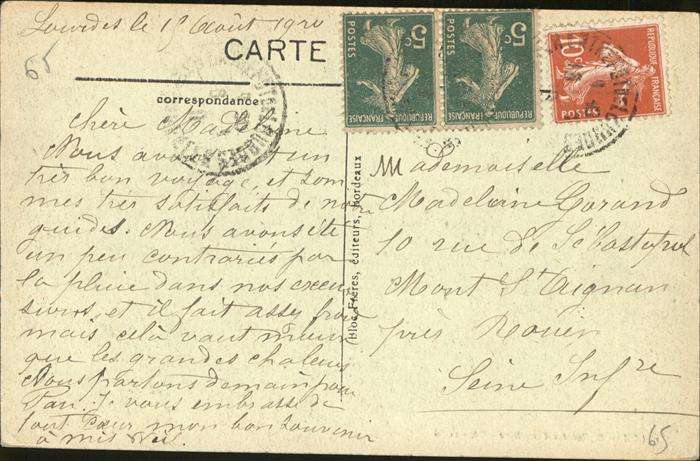 Lourdes le 1r Août 1920
CARTE
65
correspondance
5c
POSTES
REPUBLIQUE FRANÇAISE
5c
POSTES
REPUBLIQUE FRANÇAISE
10c
REPUBLIQUE FRANÇAISE
POSTES
chère
Nous avons un
très bon voyage, et som
mes très satisfaits de nos
guides. Nous avons été
un peu contrariés par
la pluie dans nos excur
sions, et il fait assez froid
mais celà vaut mieux
que les grandes chaleurs
Nous partons demain pour
Pau. Je vous embrasse de
tout Cœur mon bon souvenir
à
(Bloc Frères, éditeurs, Bordeaux
Mademoiselle
Madeleine
10 rue de Sébastopol
Mont St Aignan
près Rouen
Seine Infre
65